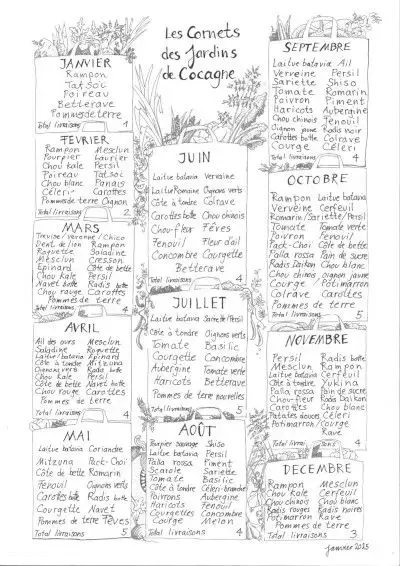 Les Cornets
des Jardins
de Cocagne
JANVIER
Rampon
Tatsoi
Poireau
Betterave
Pommes de terre
Total livraisons 1
FÉVRIER
Rampon Mesclun
Pourpier Laurier
Chou Kale Persil
Poireau Tatsoi
Chou blanc Panais
Céleri Carottes
Pommes de terre Oignon
Total livraisons 2
MARS
Trévise/Vérone/Chico
Dent de lion Rampon
Roquette Saladine
Mesclun Cresson
Epinard Côte de bette
Chou Kale Persil
Navet botte Radis botte
Chou rouge Carottes
Pommes de terre
Total livraisons 4
AVRIL
Ail des ours Mesclun
Saladine Roquette
Laitue batavia Epinard
Côte à tondre Mitzuna
Oignons verts Radis botte
Chou Kale Persil
Côte de bette Navet botte
Chou rouge Carottes
Pommes de terre
Total livraisons 4
MAI
Laitue batavia Coriandre
Mitzuna Pack-Choi
Côte de bette Romarin
Fenouil Oignons verts
Carottes botte Radis botte
Courgette Navet
Pommes de terre Fèves
Total livraisons 5
JUIN
Laitue batavia Verveine
Laitue Romaine Oignons verts
Côte à tondre Colrave
Carottes botte Chou chinois
Chou-fleur Fèves
Fenouil Fleur d'ail
Concombre Courgette
Betterave
Total livraisons 4
JUILLET
Laitue batavia Sariette/Persil
Côte à tondre Oignons verts
Tomate Basilic
Courgette Concombre
Aubergine Tomate verte
Haricots Betterave
Pommes de terre nouvelles
Total livraisons 5
AOÛT
Pourpier sauvage Shiso
Laitue batavia Persil
Palla rossa Piment
Scarole Sariette
Tomate Basilic
Côte à tondre Céleri-branche
Poivrons Aubergine
Haricots Fenouil
Courgettes Concombre
Courge Melon
Total livraisons 4
SEPTEMBRE
Laitue batavia Ail
Verveine Persil
Sariette Shiso
Tomate Romarin
Poivron Piment
Haricots Aubergine
Chou chinois Fenouil
Oignon jaune Radis noir
Carottes botte Colrave
Courge Céleri
Total livraisons 4
OCTOBRE
Rampon Laitue batavia
Verveine Cerfeuil
Romarin/Sariette/Persil
Tomate Tomate verte
Poivron Fenouil
Pack-Choi Côte de bette
Palla rossa Pain de sucre
Radis Daikon Chou blanc
Chou chinois Oignon jaune
Courge Potimarron
Colrave Carottes
Pommes de terre
Total livraisons 5
NOVEMBRE
Persil Radis botte
Mesclun Rampon
Laitue batavia Cerfeuil
Côte à tondre Yukina
Palla rossa Pain de sucre
Chou-fleur Radis Daikon
Carottes Chou blanc
Patates douces Céleri
Potimarron/Courge
Rave
Total livraisons 4
DECEMBRE
Rampon Mesclun
Chou Kale Cerfeuil
Chou chinois Chou blanc
Radis rouges Radis noires
Potimarron Rave
Pommes de terre
Total livraisons 3
janvier 2025